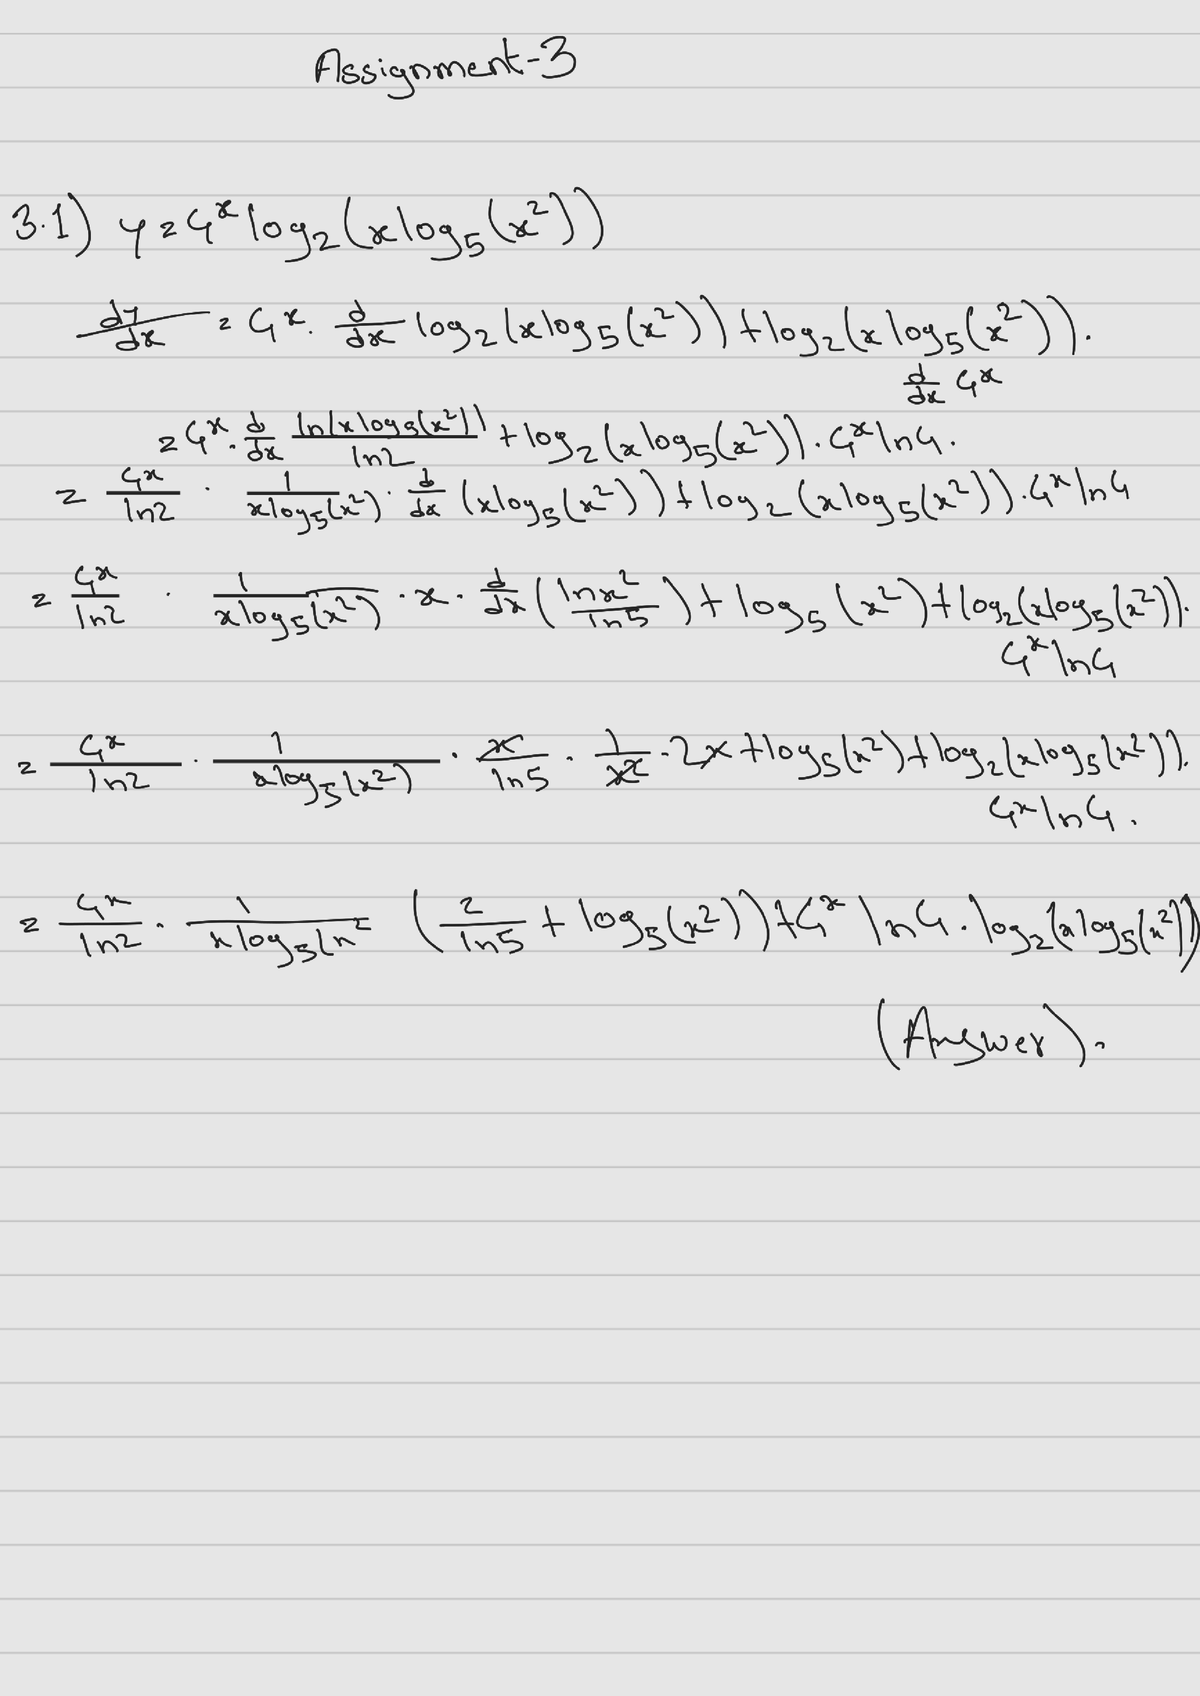 Assignment-3
3.1) y = 4^x log_2(x log_5(x^2))
dy/dx = 4^x . d/dx log_2(x log_5(x^2)) + log_2(x log_5(x^2)).
d/dx 4^x
= 4^x . d/dx ln(x log_5(x^2))/ln2 + log_2(x log_5(x^2)) . 4^x ln4.
= 4^x/ln2 . 1/(x log_5(x^2)) . d/dx (x log_5(x^2)) + log_2(x log_5(x^2)) . 4^x ln4
= 4^x/ln2 . 1/(x log_5(x^2)) . x . d/dx (lnx^2/ln5) + log_5(x^2) + log_2(x log_5(x^2)).
4^x ln4
= 4^x/ln2 . 1/(x log_5(x^2)) . x/ln5 . 1/x^2 . 2x + log_5(x^2) + log_2(x log_5(x^2)).
4^x ln4.
= 4^x/ln2 . 1/(x log_5(x^2 (2/ln5 + log_5(x^2)) + 4^x ln4 . log_2(x log_5(x^2))
(Answer).